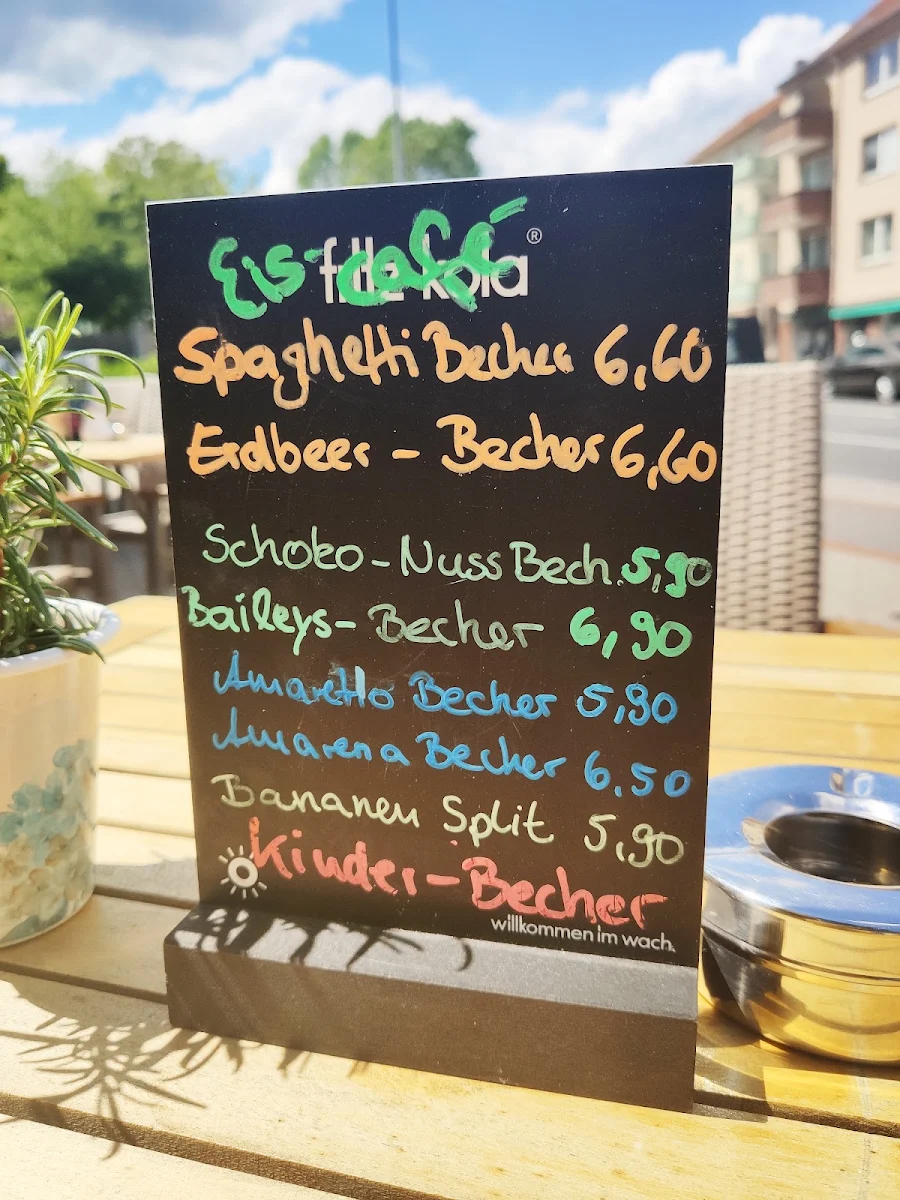 Eis-café
fritz-kola®
Spaghetti Becher 6,60
Erdbeer - Becher 6,60
Schoko-Nuss Bech. 5,90
Baileys-Becher 6,90
Amaretto Becher 5,90
Amarena Becher 6,50
Bananen Split 5,90
Kinder-Becher
willkommen im wach.